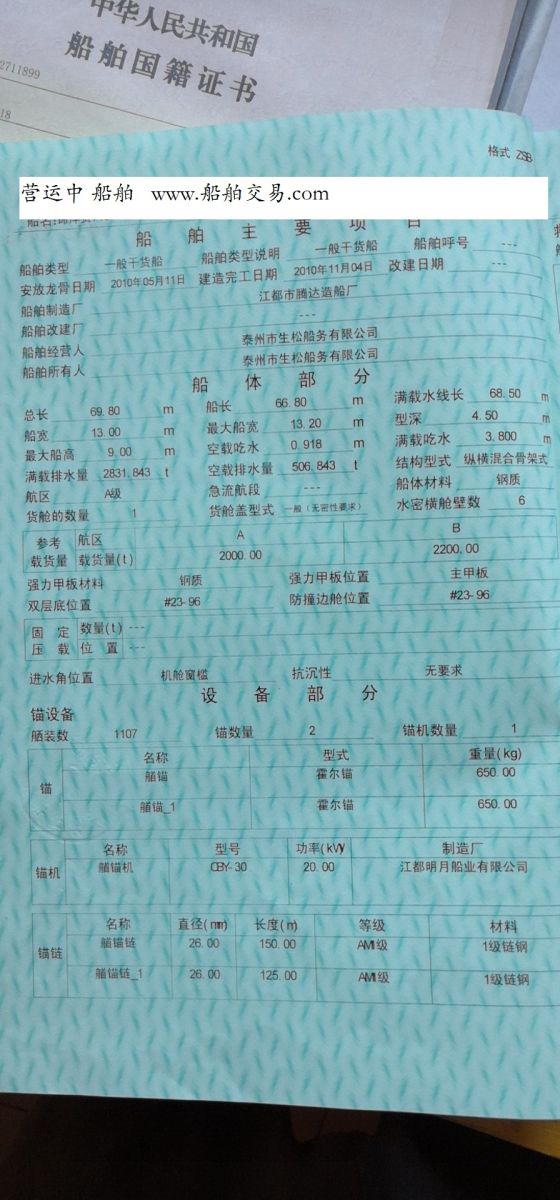 中华人民共和国
船舶国籍证书
2711899
18
格式 ZSB
营运中 船舶 www.船舶交易.com
船舶主要项目
船舶类型 一般干货船 船舶类型说明 一般干货船 船舶呼号 ---
安放龙骨日期 2010年05月11日 建造完工日期 2010年11月04日 改建日期 ---
船舶制造厂 江都市腾达造船厂
船舶改建厂 ---
船舶经营人 泰州市生松船务有限公司
船舶所有人 泰州市生松船务有限公司
船体部分
总长 69.80 m 船长 66.80 m 满载水线长 68.50 m
船宽 13.00 m 最大船宽 13.20 m 型深 4.50 m
最大船高 9.00 m 空载吃水 0.918 m 满载吃水 3.800 m
满载排水量 2831.843 t 空载排水量 506.843 t 结构型式 纵横混合骨架式
航区 A级 急流航段 --- 船体材料 钢质
货舱的数量 1 货舱盖型式 一般（无密性要求） 水密横舱壁数 6
参考 航区 A B
载货量 载货量(t) 2000.00 2200.00
强力甲板材料 钢质 强力甲板位置 主甲板
双层底位置 #23-96 防撞边舱位置 #23-96
固定 数量(t) ---
压载 位置 ---
进水角位置 机舱窗槛 抗沉性 无要求
设备部分
锚设备
舾装数 1107 锚数量 2 锚机数量 1
名称 型式 重量(kg)
锚 艏锚 霍尔锚 650.00
艏锚_1 霍尔锚 650.00
名称 型号 功率(kW) 制造厂
锚机 艏锚机 CBY-30 20.00 江都明月船业有限公司
名称 直径(mm) 长度(m) 等级 材料
锚链 艏锚链 26.00 150.00 AM1级 1级链钢
艏锚链_1 26.00 125.00 AM1级 1级链钢